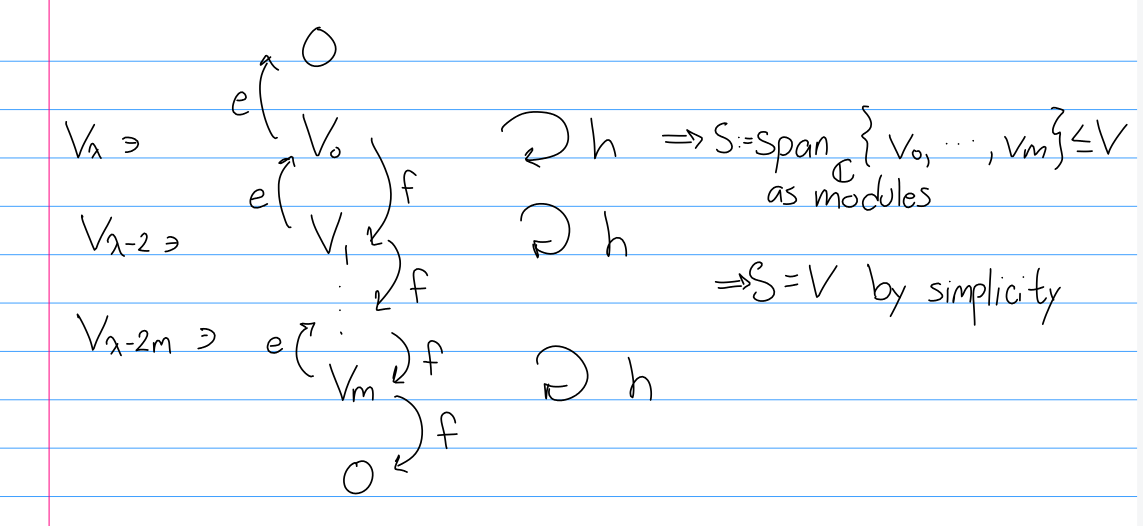 0
e
V_λ ∋ v_0 h ⇒ S:=span_ℂ {v_0, ⋯, v_m} ≤ V
e f as modules
V_{λ-2} ∋ v_1 h
f ⇒ S = V by simplicity
⋮
V_{λ-2m} ∋ e f
v_m h
f
0